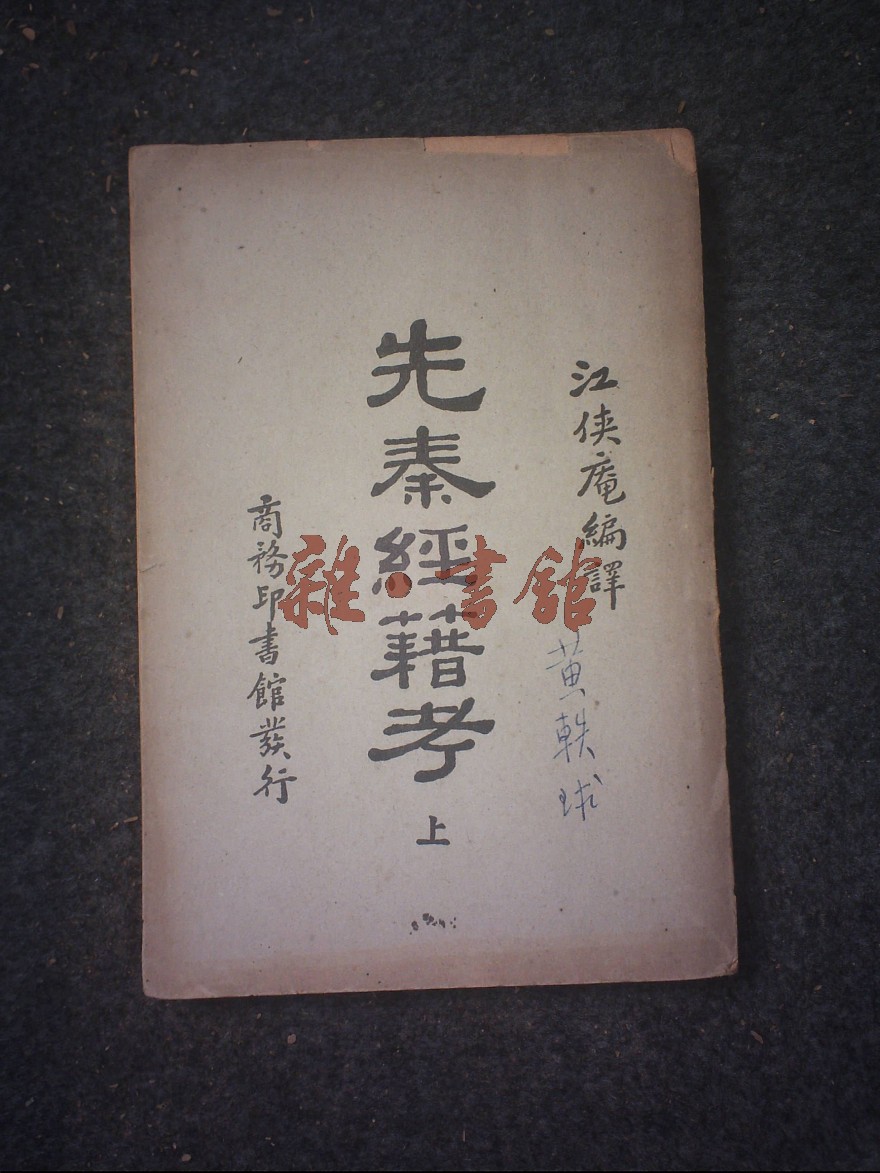 江俠庵編譯
黃軼球
先秦經籍考
上
商務印書館發行
雜·書館